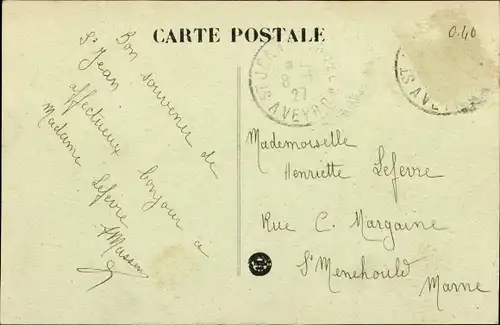 CARTE POSTALE
0.40
Bon souvenir de
St Jean
affectueux bonjour à
Madame Lefevre
Masson
St JEAN
8
27
AVEYRON
AVEYRON
Mademoiselle
Henriette Lefevre
Rue C. Margaine
Ste Menehould
Marne